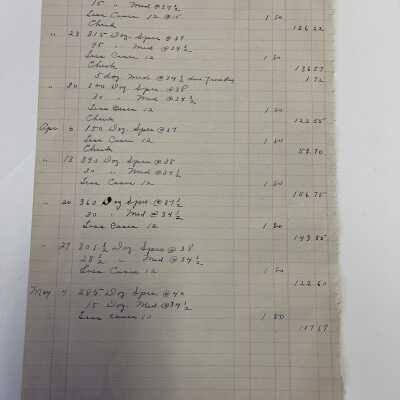 15 " Med @ 34 1/2
Less Cases 12 @ 15 1 80
Check 126 22
" 23 315 Doz. Spec @ 39
45 " Med @ 34 1/2
Less Cases 12 1 80
Check 136 57
5 doz Med @ 34 1/2 due Tuesday 1 72
" 30 Doz. Spec @ 38
30 " Med @ 34 1/2
Less Cases 12 1 80
Check 122 55
Apr 6 150 Doz. Spec @ 37
Less Cases 12 1 80
Check 53.70
" 13 390 Doz Spec @ 38
30 " Med @ 34 1/2
Less Cases 12 1 80
156 75
" 20 360 Doz Spec @ 37 1/2
30 " Med @ 34 1/2
Less Cases 12 1 80
143 55
" 27 301 1/2 Doz Spec @ 38
28 1/2 " Med @ 34 1/2
Less Cases 12 1 80
122 60
May 4 285 Doz Spec @ 40
15 Doz Med @ 34 1/2
Less cases 12 1 80
117 37